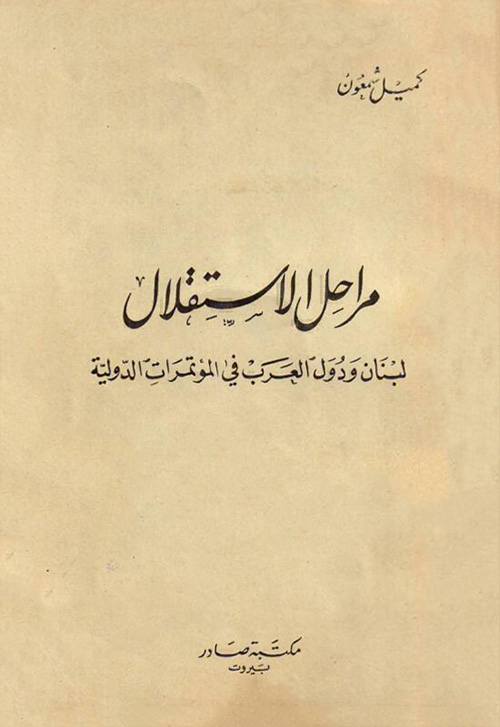 كميل شمعون
مراحل الاستقلال
لبنان ودول العرب في المؤتمرات الدولية
مكتبة صادر
بيروت